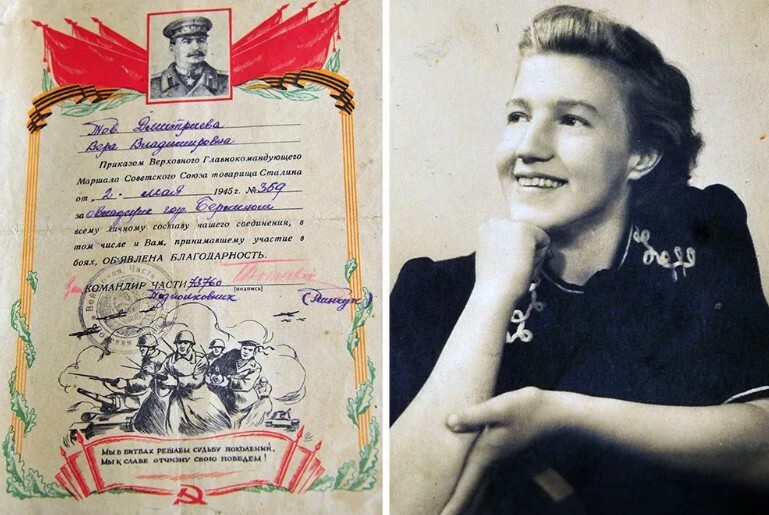 Тов. Дмитриева
Вера Владимировна
Приказом Верховного Главнокомандующего
Маршала Советского Союза товарища Сталина
от „2“ мая 1945 г. № 359
за овладение гор. Берлином
всему личному составу нашего соединения, в
том числе и Вам, принимавшему участие в
боях, ОБ'ЯВЛЕНА БЛАГОДАРНОСТЬ.
КОМАНДИР ЧАСТИ 73760
(подпись)
Подполковник
МЫ В БИТВАХ РЕШАЕМ СУДЬБУ ПОКОЛЕНИЙ,
МЫ К СЛАВЕ ОТЧИЗНУ СВОЮ ПОВЕДЕМ!